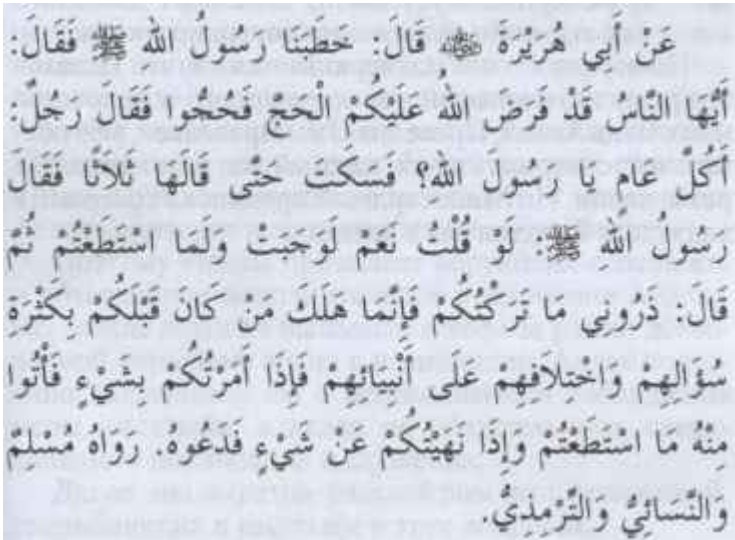 عَنْ أَبِي هُرَيْرَةَ ﵁ قَالَ: خَطَبَنَا رَسُولُ اللهِ ﷺ فَقَالَ:
أَيُّهَا النَّاسُ قَدْ فَرَضَ اللهُ عَلَيْكُمْ الْحَجَّ فَحُجُّوا فَقَالَ رَجُلٌ:
أَكُلَّ عَامٍ يَا رَسُولَ اللهِ؟ فَسَكَتَ حَتَّى قَالَهَا ثَلَاثًا فَقَالَ
رَسُولُ اللهِ ﷺ: لَوْ قُلْتُ نَعَمْ لَوَجَبَتْ وَلَمَا اسْتَطَعْتُمْ ثُمَّ
قَالَ: ذَرُونِي مَا تَرَكْتُكُمْ فَإِنَّمَا هَلَكَ مَنْ كَانَ قَبْلَكُمْ بِكَثْرَةِ
سُؤَالِهِمْ وَاخْتِلَافِهِمْ عَلَى أَنْبِيَائِهِمْ فَإِذَا أَمَرْتُكُمْ بِشَيْءٍ فَأْتُوا
مِنْهُ مَا اسْتَطَعْتُمْ وَإِذَا نَهَيْتُكُمْ عَنْ شَيْءٍ فَدَعُوهُ. رَوَاهُ مُسْلِمٌ
وَالنَّسَائِيُّ وَالتِّرْمِذِيُّ.